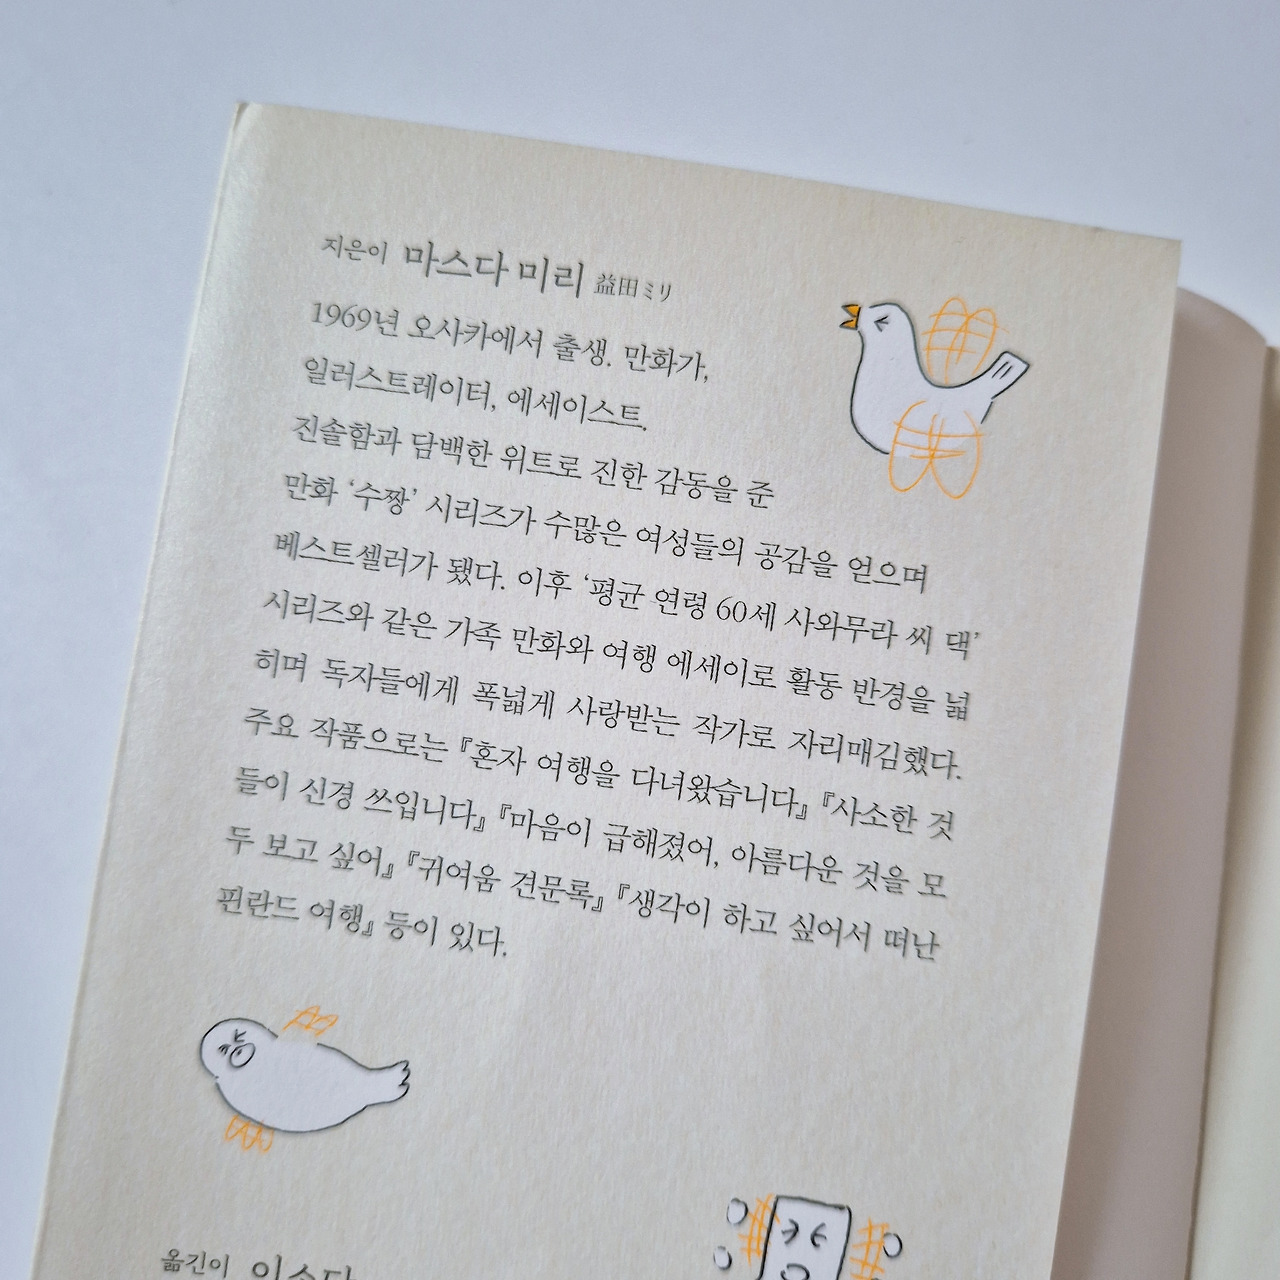 지은이 마스다 미리 益田ミリ
1969년 오사카에서 출생. 만화가,
일러스트레이터, 에세이스트.
진솔함과 담백한 위트로 진한 감동을 준
만화 ‘수짱’ 시리즈가 수많은 여성들의 공감을 얻으며
베스트셀러가 됐다. 이후 ‘평균 연령 60세 사와무라 씨 댁’
시리즈와 같은 가족 만화와 여행 에세이로 활동 반경을 넓
히며 독자들에게 폭넓게 사랑받는 작가로 자리매김했다.
주요 작품으로는 『혼자 여행을 다녀왔습니다』 『사소한 것
들이 신경 쓰입니다』 『마음이 급해졌어, 아름다운 것을 모
두 보고 싶어』 『귀여움 견문록』 『생각이 하고 싶어서 떠난
핀란드 여행』 등이 있다.
옮긴이